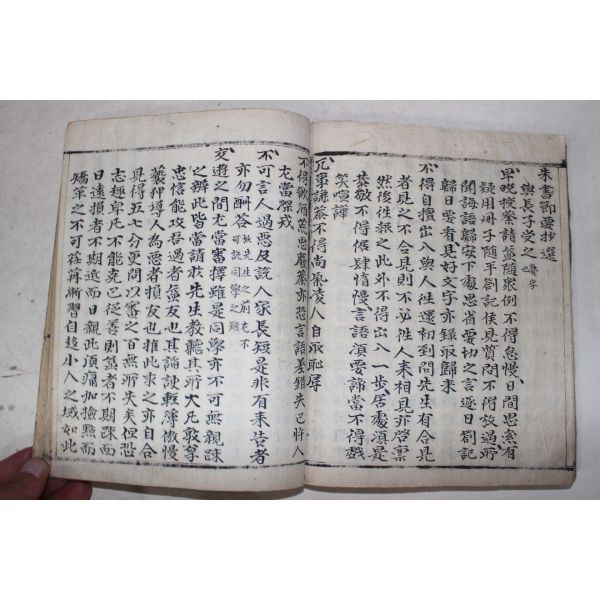 朱書節要抄選
與長子受之
早晩授業請益隨衆例不得怠慢日間思索有
疑用冊子隨手劄記俟見質問不得放過所
聞誨語歸安下處思省要切之言逐日劄記
歸日要看見好文字亦錄取歸來
不得自擅出入與人往還初到問先生有合見
者見之不合見則不必往人來相見亦啓稟
然後往報之此外不得出入一步居處須是
恭敬不得倨肆惰慢言語須要諦當不得戱
笑喧譁
凡事謙恭不得尚氣凌人自取恥辱
不得飮酒荒思廢業亦恐言語差錯失己忤人
尤當深戒
不可言人過惡及說人家長短是非有來告者
亦勿酬答於先生之前尤不可說同學之短
交遊之間尤當審擇雖是同學亦不可無親踈
之辨此皆當請於先生聽其所敎大凡敦厚
忠信能攻吾過者益友也其諂諛輕薄傲慢
褻狎導人為惡者損友也推此求之亦自合
見得五七分更問以審之百無所失矣但恐
志趣卑凡不能克己從善則益者不期踈而
日遠損者不期近而日親此須痛加檢點而
矯革之不可荏苒漸習自趨小人之域如此